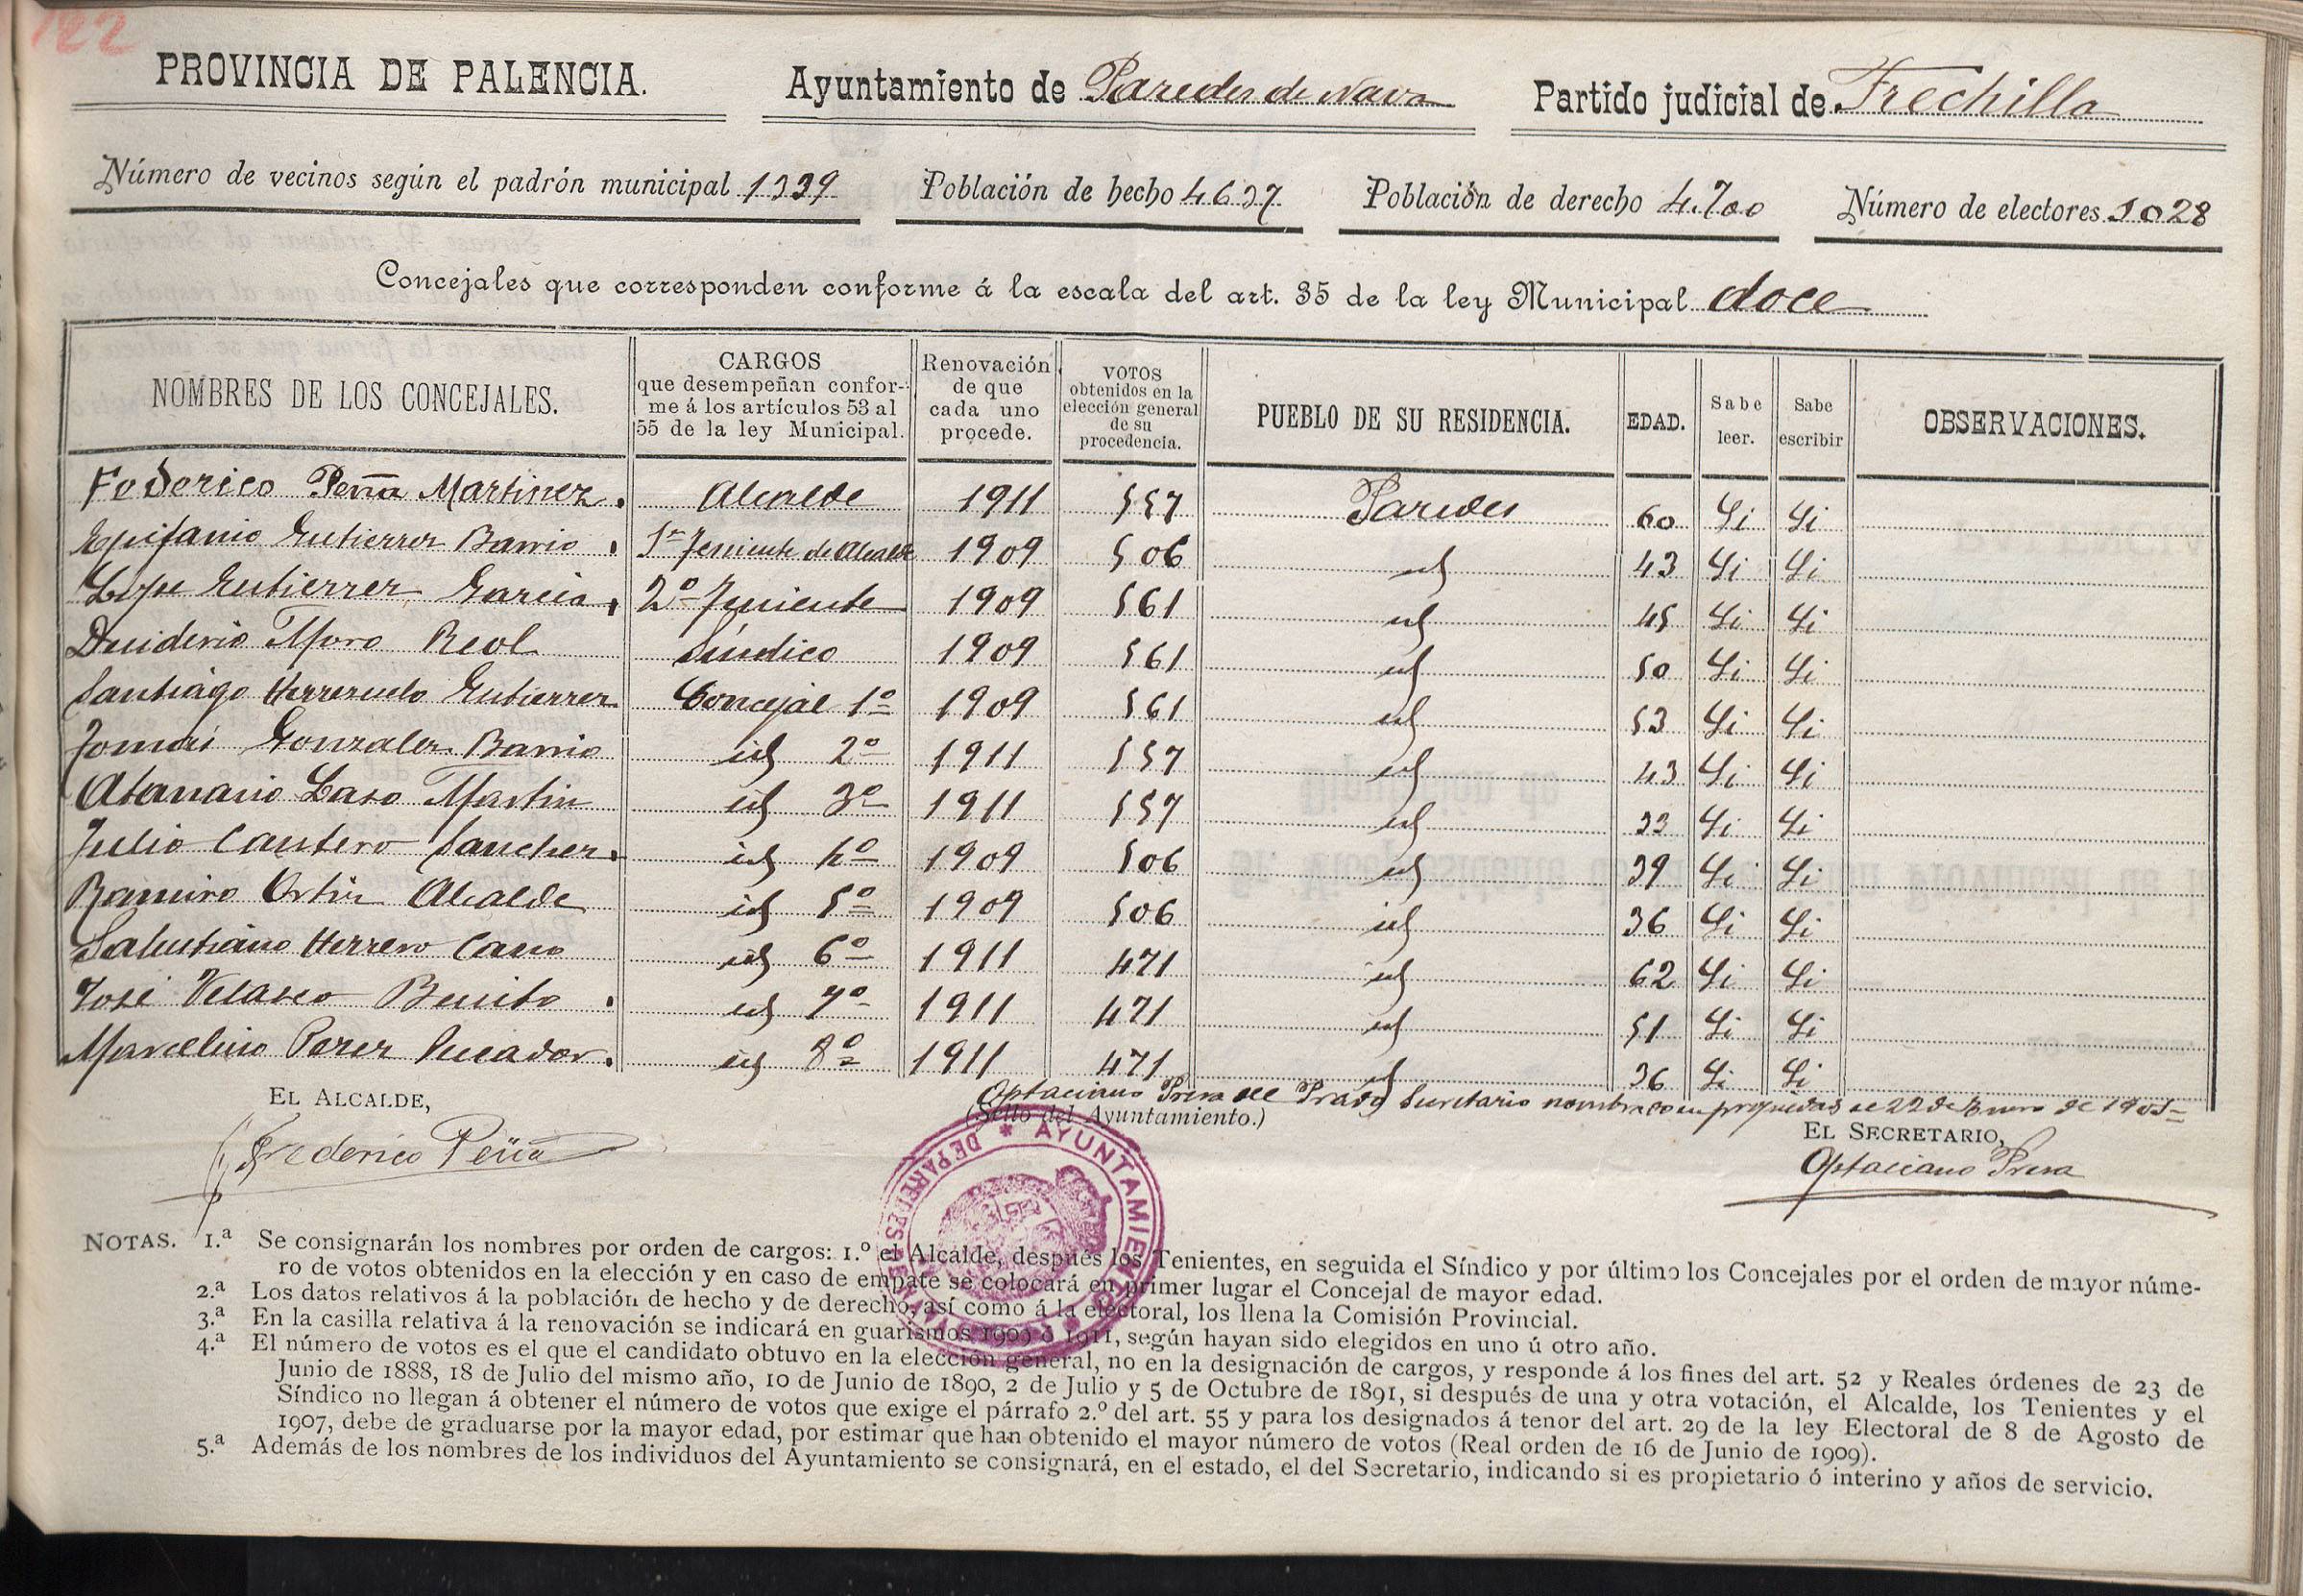 122
PROVINCIA DE PALENCIA. Ayuntamiento de Paredes de Nava Partido judicial de Frechilla
Número de vecinos según el padrón municipal 1339 Población de hecho 4637 Población de derecho 4.700 Número de electores 1028
Concejales que corresponden conforme á la escala del art. 35 de la ley Municipal doce
NOMBRES DE LOS CONCEJALES. CARGOS que desempeñan conforme á los artículos 53 al 55 de la ley Municipal. Renovación de que cada uno procede. VOTOS obtenidos en la elección general de su procedencia. PUEBLO DE SU RESIDENCIA. EDAD. Sabe leer. Sabe escribir OBSERVACIONES.
Federico Peña Martinez. Alcalde 1911 557 Paredes 60 Si Si
Epifanio Gutierrez Barrio. 1er Teniente de Alcalde 1909 506 id 43 Si Si
Lope Gutierrez Garcia. 2º Teniente 1909 561 id 45 Si Si
Desiderio Moro Reol Síndico 1909 561 id 50 Si Si
Santiago Herreruelo Gutierrez Concejal 1º 1909 561 id 53 Si Si
Tomás Gonzalez Barrio id 2º 1911 557 id 43 Si Si
Atanasio Laso Martin id 3º 1911 557 id 33 Si Si
Julio Cantero Sanchez. id 4º 1909 506 id 39 Si Si
Ramiro Ortiz Alcalde id 5º 1909 506 id 36 Si Si
Salustiano Herrero Cano id 6º 1911 471 id 62 Si Si
José Velasco Benito. id 7º 1911 471 id 51 Si Si
Marcelino Perez Pescador. id 8º 1911 471 id 36 Si Si
Optaciano Presa del Prado Secretario nombrado en propiedad de 22 de Enero de 1905=
EL ALCALDE, (Sello del Ayuntamiento.) EL SECRETARIO,
Federico Peña Optaciano Presa
* AYUNTAMIENTO * DE PAREDES DE NAVA
NOTAS. 1.ª Se consignarán los nombres por orden de cargos: 1.º el Alcalde, después los Tenientes, en seguida el Síndico y por último los Concejales por el orden de mayor núme-
ro de votos obtenidos en la elección y en caso de empate se colocará en primer lugar el Concejal de mayor edad.
2.ª Los datos relativos á la población de hecho y de derecho, así como á la electoral, los llena la Comisión Provincial.
3.ª En la casilla relativa á la renovación se indicará en guarismos 1909 ó 1911, según hayan sido elegidos en uno ú otro año.
4.ª El número de votos es el que el candidato obtuvo en la elección general, no en la designación de cargos, y responde á los fines del art. 52 y Reales órdenes de 23 de
Junio de 1888, 18 de Julio del mismo año, 10 de Junio de 1890, 2 de Julio y 5 de Octubre de 1891, si después de una y otra votación, el Alcalde, los Tenientes y el
Síndico no llegan á obtener el número de votos que exige el párrafo 2.º del art. 55 y para los designados á tenor del art. 29 de la ley Electoral de 8 de Agosto de
1907, debe de graduarse por la mayor edad, por estimar que han obtenido el mayor número de votos (Real orden de 16 de Junio de 1909).
5.ª Además de los nombres de los individuos del Ayuntamiento se consignará, en el estado, el del Secretario, indicando si es propietario ó interino y años de servicio.